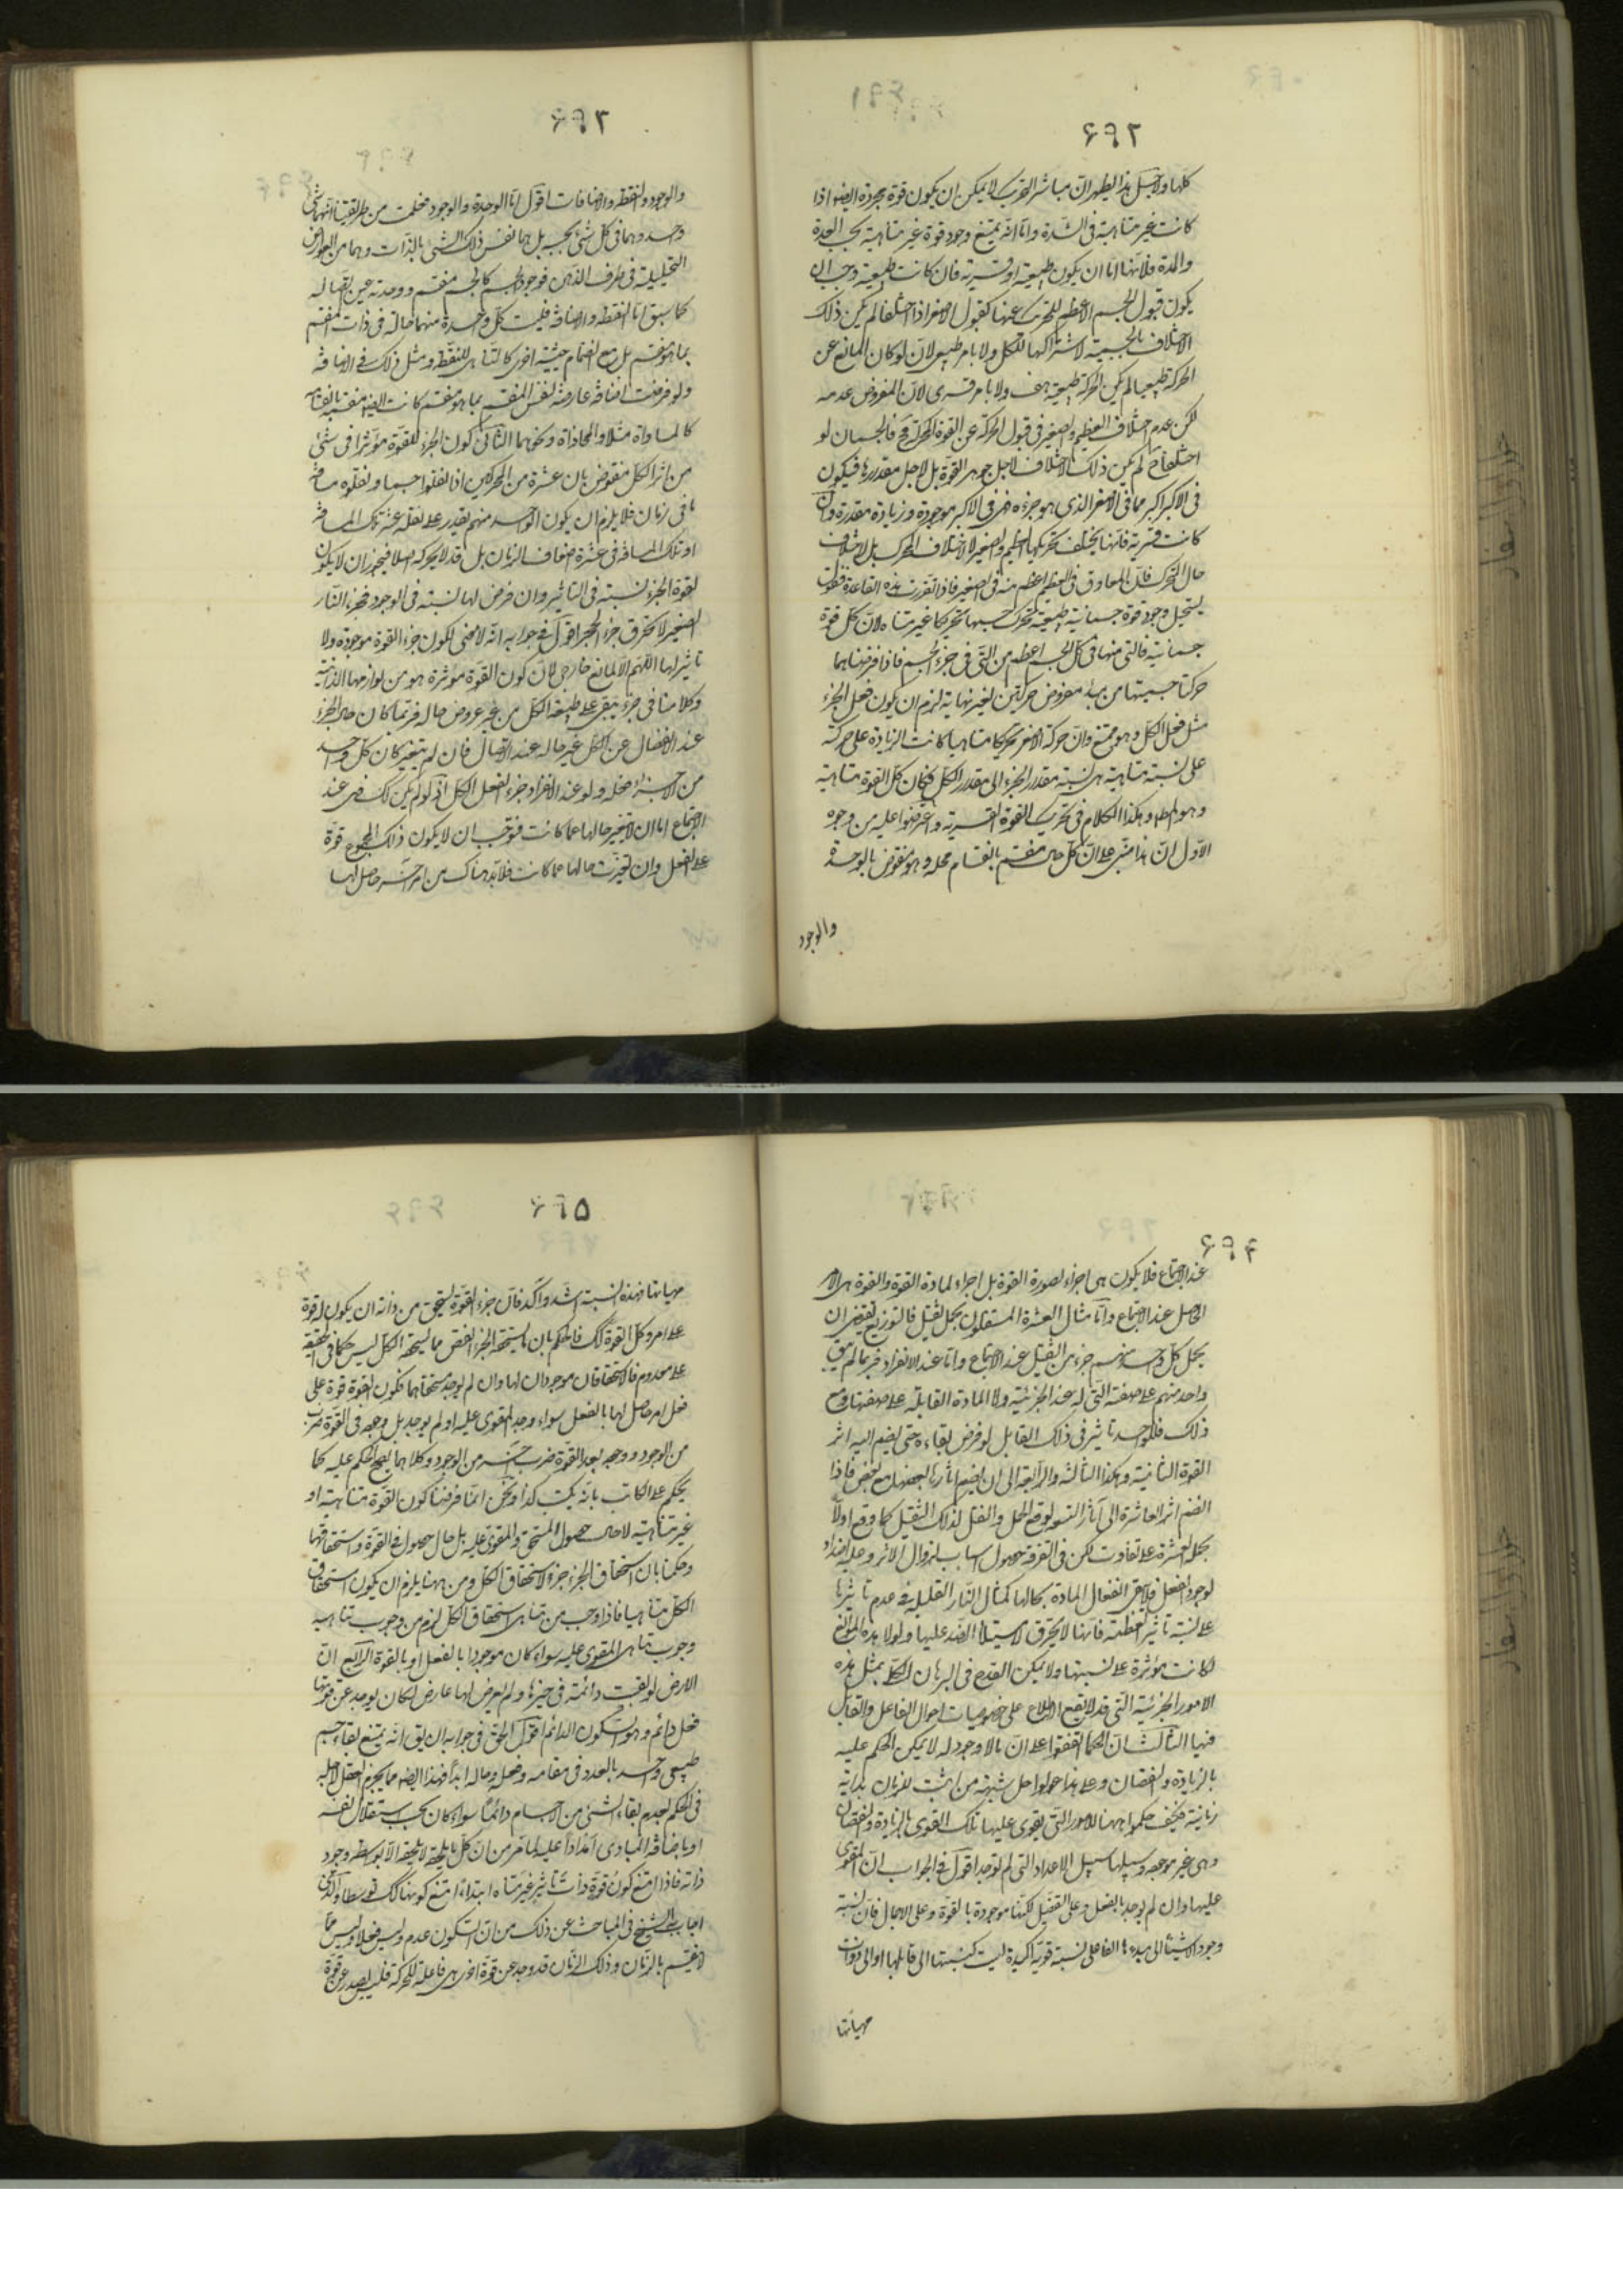 ۶۹۲
كلها ولاجل هذا يظهر ان مباشر التحريك لا يمكن ان يكون قوة مجردة ايضا اذا
كانت غير متناهية فى الشدة واما انه يمتنع وجود قوة غير متناهية بحسب العدة
والمدة فلانها اما ان يكون طبيعية او قسرية فان كانت طبيعية وجب ان
يكون قبول الجسم الاعظم للتحريك عنها كقبول الاصغر اذا اختلفا لم يكن ذلك
الاختلاف بالجسمية لاشتراكها للكل ولا بامر طبيعى لانه لو كان المانع عن
الحركة طبيعيا لم يكن الحركة طبيعية هف ولا بامر قسرى لان المفروض عدمه
لكن عدم اختلاف العظيم والصغير فى قبول الحركة عن القوة المحركة فالجسمان لو
اختلفا لم يكن ذلك الاختلاف لاجل جوهر القوة بل لاجل مقدارها فيكون
فى الاكبر اكبر مما فى الاصغر الذى هو جزءه فهى فى الاكبر موجودة وزيادة مقدرة وان
كانت قسرية فانها يختلف تحريكها للعظيم والصغير لا لاختلاف المحرك بل لاختلاف
حال المتحرك فان المعاوق فى العظيم اعظم منه فى الصغير فاذا تقررت هذه القاعدة فنقول
يستحيل وجود قوة جسمانية طبيعية تحرك جسمها تحريكا غير متناه لان كل قوة
جسمانية فالتى منها فى كل الجسم اعظم من التى فى جزء الجسم فاذا فرضناهما
حركتا جسميهما من مبدء مفروض حركتين لغير نهاية لزم ان يكون فعل الجزء
مثل فعل الكل وهو ممتنع وان حركه الاصغر تحريكا متناهيا كانت الزيادة على حركته
على نسبة متناهية هى نسبة مقدار الجزء الى مقدار الكل فكان كل القوة متناهية
وهو المط وهكذا الكلام فى تحريك القوة القسرية واعترضوا عليه من وجوه
الاول ان هذا مبنى على ان كل حال منقسم بانقسام محله وهو منقوض بالوحدة
والوجود
۶۹۳
والوجود والنقطة والاضافات اقول اما الوحدة والوجود فعلمت من طريقتنا انهما شئ
واحد وهما فى كل شئ بحسبه بل هما نفس ذلك الشئ بالذات وهما من العوارض
التحليلية فى ظرف الذهن فوجود الجسم كالجسم منقسم ووحدته عين اتصاله
كما سبق اما النقطة والاضافة فليست كل واحدة منهما حالة فى ذات المنقسم
بما هو منقسم بل مع انضمام حيثية اخرى كالتناهى للنقطة ومثل ذلك فى الاضافة
ولو فرضت اضافة عارضة لنفس المنقسم بما هو منقسم كانت ايضا منقسمة بانقسامه
كالمساواة مثلا والمحاذاة ونحوهما الثانى كون الجزء للقوة مؤثرا فى شئ
من اثر الكل منقوض بان عشرة من المحركين اذا نقلوا جسما ونقلوه مسافة
ما فى زمان فلا يلزم ان يكون الواحد منهم يقدر على نقله عشر تلك المسافة
او تلك المسافة فى عشرة اضعاف الزمان بل قد لا يحركه اصلا فيجوز ان لا يكون
لقوة الجزء نسبة فى التاثير وان فرض لها نسبة فى الوجود فجزء النار
الصغير لا تحرق جزء الحجر اقول فى جوابه انه لا معنى لكون جزء القوة موجودة ولا
تاثير لها اللهم الا لمانع خارجى لان كون القوة مؤثرة هو من لوازمها الذاتية
وكلامنا فى جزء يبقى على طبيعة الكل من غير عروض حالة فربما كان حال الجزء
عند الانفصال عن الكل غير حاله عند الاتصال فان لم يتغير كان كل واحد
من الاجزاء فعله ولو عند الانفراد جزء لفعل الكل اذ لو لم يكن كك فهى عند
الاجتماع اما ان لا يتغير حالها عما كانت فوجب ان لا يكون ذلك المجموع قوة
على الفعل وان تغيرت حالها عما كانت فلابد هناك من امر آخر حاصل لها
۶۹۴
عند الاجتماع فلا يكون هى اجزاء لصورة القوة بل اجزاء لمادة القوة والقوة هى الامر
الحاصل عند الاجتماع واما مثال العشرة المستقلون بحمل ثقيل فالتوزيع يقتضى ان
يحمل كل واحد منهم جزء من الثقيل عند الاجتماع واما عند الانفراد فربما لم يبق
واحد منهم على صفته التى له عند الجزئية ولا المادة القابلة على صفتها ومع
ذلك فللواحد تاثير فى ذلك القابل لو فرض بقاءه حتى ينضم اليه اثر
القوة الثانية وهكذا الثالثة والرابعة الى ان ينضم آثارها بعضها مع بعض فاذا
انضم اثر العاشرة الى آثار التسعة لوقع الحمل والنقل لذلك الثقيل كما وقع اولا
بحمل العشرة على تفاوت لكن فى التفرقة حصول اسباب لزوال الاثر وحلول اضداد
لوجود الفعل فلا يبقى انفعال المادة بحالها كمثال النار القليلة فى عدم تاثيرها
على نسبة تاثير العظيمة فانها لا يحترق لاستيلاء الضد عليها ولولا هذه الموانع
لكانت مؤثرة على نسبتها ولا يمكن القدح فى البرهان الكلى بمثل هذه
الامور الجزئية التى قد لا يقع الاطلاع على خصوصيات احوال الفاعل والقابل
فيها الثالث ان الحكماء اتفقوا على ان ما لا وجود له لا يمكن الحكم عليه
بالزيادة والنقصان وعلى هذا عولوا حل شبهة من اثبت للزمان بداية
زمانية فكيف حكموا ههنا للامور التى يقوى عليها تلك القوى بالزيادة والنقصان
وهى غير موجودة وسبيلها سبيل الاعداد التى لم توجد اقول فى الجواب ان المقوى
عليها وان لم يوجد بالفعل وعلى التفصيل لكنها موجودة بالقوة وعلى الاجمال فان نسبة
وجود الاشياء الى مبدءها الفاعلى نسبة قوية اكيدة ليست كنسبتها الى قابلها او الى ذوات
مهياتها
۶۹۵
مهياتها فهذه النسبة اشد وآكد فان جزء القوة يستحق من ذاته ان يكون له قوة
على امر وكل القوة كك فالحكم بان ما يستحقه الجزء انقص مما يستحقه الكل ليس حكما فى الحقيقة
على معدوم فالاستحقاقان موجودان لها وان لم يوجد مستحقاهما فكون القوة قوة على
فعل امر حاصل لها بالفعل سواء وجد المقوى عليه او لم يوجد بل وجوده فى القوة ضرب
من الوجود ووجوده بعد القوة ضرب آخر من الوجود وكلاهما يصح الحكم عليه كما
يحكم على الكاتب بانه يكتب كذا ونحن انما فرضنا كون القوة متناهية او
غير متناهية لا حال حصول المستحق والمقوى عليه بل حال حصول القوة واستحقاقها
وحكمنا بان استحقاق الجزء جزء لاستحقاق الكل ومن ههنا يلزم ان يكون استحقاق
الكل متناهيا فاذا وجب من تناهى استحقاق الكل لزم من وجوب تناهيه
وجوب تناهى المقوى عليه سواء كان موجودا بالفعل او بالقوة الرابع ان
الارض لو بقيت دائمة فى حيزها ولم يعرض لها عارض لكان يوجد عن قوتها
فعل دائم وهو السكون الدائم اقول الحق فى جوابه ان يق انه يمتنع بقاء جسم
طبيعى واحد بالعدد فى مقامه وفعله وحاله ابدا فهذا ايضا مما يجزم العقل لاجله
فى الحكم بعدم بقاء الشئ من الاجسام دائما سواء كان بحسب استقلال نفسه
او باضافة المبادى امدادا عليه لما مر من ان كل ما يلحقه لا يلحقه الا بواسطة وجود
ذاته فاذا امتنع كون قوة ذات تاثير غير متناه ابتداء امتنع كونها كك توسطا والذى
اجاب به الشيخ فى المباحث عن ذلك من ان السكون عدم وليس فعلا وليس مما
لا ينقسم بالزمان وذلك الزمان قد وجد عن قوة اخرى هى فاعلة للحركة فليس يصدر عن قوة